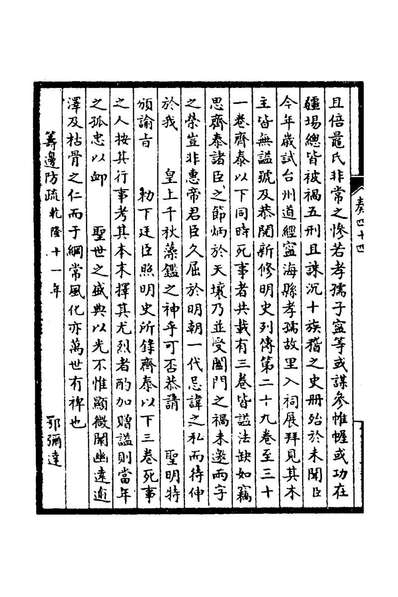 且倍蕞氏非常之慘若孝孺子寧等或謀參惟幄或功在
疆場總皆被禍五刑且誅沉十族稽之史冊殆於未聞臣
今年歲試台州道經寧海縣孝孺故里入祠展拜見其本
主皆無謚號及恭閱新修明史列傳第二十九卷至三十
一卷齊泰以下同時死事者共載有三卷皆謚法缺如竊
思齊泰諸臣之節炳於天壤乃並受闔門之禍未邀兩字
之榮豈非惠帝君臣久屈於明朝一代忌諱之私而待伸
於我 皇上千秋藻鑑之神乎可否恭請 聖明特
頒諭旨 勅下廷臣照明史所錄齊泰以下三卷死事
之人按其行事考其本末擇其尤烈者酌加贈謚則當年
之孤忠以卹 聖世之盛典以光不惟顯微闡幽遠逾
澤及枯骨之仁而于綱常風化亦萬世有裨也
籌邊防疏乾隆十一年 鄂彌達
奏四十四